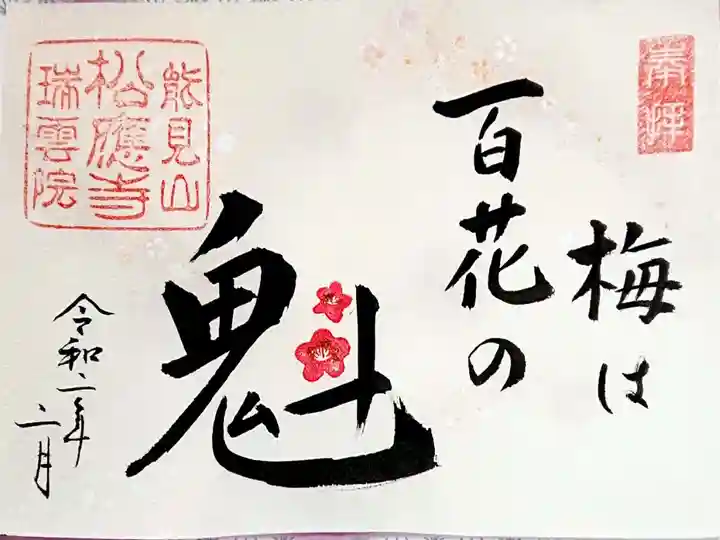 奉拝
梅は
百花の
魁
能見山
松應寺
瑞雲院
令和二年
二月